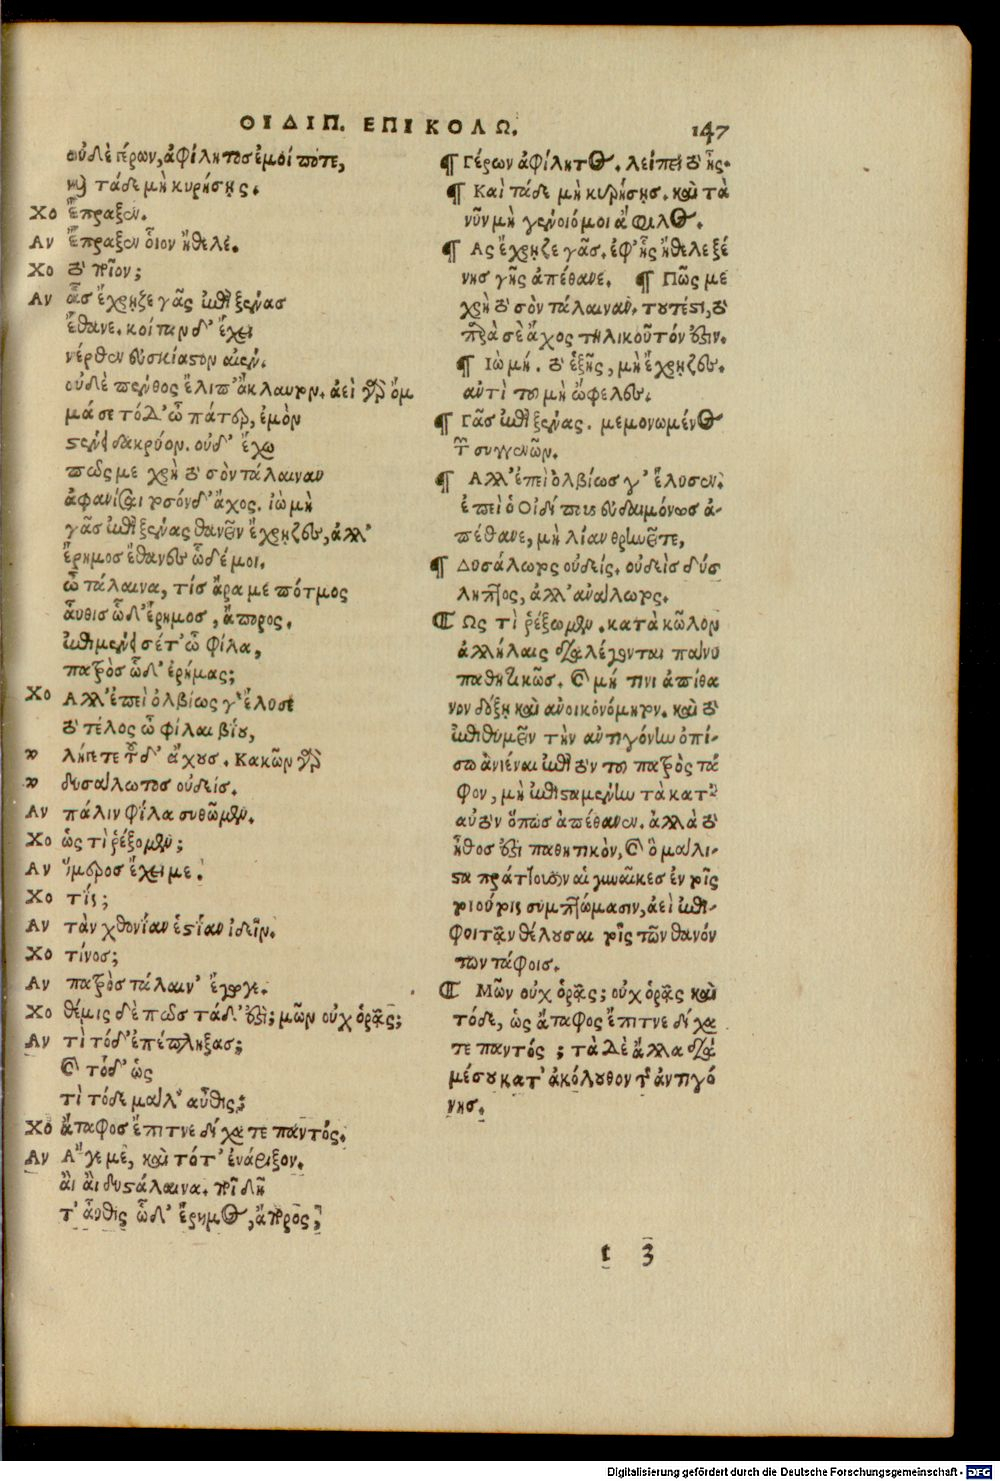 ΟΙΔΙΠ. ΕΠΙ ΚΟΛΩ. 147
οὐδὲ γέρων, ἀφίλητος ἐμοί ποτε,
καὶ τάδε μὴ κυρήσῃς.
Χο ἔπραξεν.
Αν ἔπραξεν οἷον ἤθελε.
Χο τὸ ποῖον;
Αν ἇς ἔχρῃζε γᾶς ἐπὶ ξένας
ἔθανε. κοίταν δ' ἔχει
νέρθεν εὐσκίαστον αἰέν.
οὐδὲ πένθος ἔλιπ' ἄκλαυτον. ἀεὶ γὰρ ὄμ
μά σε τόδ' ὦ πάτερ, ἐμὸν
στένει δακρύον. οὐδ' ἔχω
πῶς με χρὴ τὸ σὸν τάλαιναν
ἀφανίσαι τοσόνδ' ἄχος. ἰὼ μὴ
γᾶς ἐπὶ ξένας θανεῖν ἔχρῃζες, ἀλλ'
ἔρημος ἔθανες ὧδέ μοι.
ὦ τάλαινα, τίς ἄρα με πότμος
αὖθις ὧδ' ἔρημος, ἄπορος,
ἐπιμένει σέ τ' ὦ φίλα,
πατρὸς ὧδ' ἐρήμας;
Χο Αλλ' ἐπεὶ ὀλβίως γ' ἔλυσε
τὸ τέλος ὦ φίλαι βίου,
λήγετε τοῦδ' ἄχους. Κακῶν γὰρ
δυσάλωτος οὐδείς.
Αν πάλιν φίλα συθῶμεν.
Χο ὡς τὶ ῥέξομεν;
Αν ἵμερος ἔχει με.
Χο τίς;
Αν τὰν χθονίαν ἑστίαν ἰδεῖν.
Χο τίνος;
Αν πατρὸς τάλαιν' ἔγωγε.
Χο θέμις δὲ πῶς τάδ' ἐστὶ; μῶν οὐχ ὁρᾷς;
Αν τὶ τόδ' ἐπέπληξας;
καὶ τόδ' ὡς
τὶ τόδε μάλ' αὖθις;
Χο ἄταφος ἔπιτνε δίχα τε παντός.
Αν Αγε με, καὶ τότ' ἐνάριξον.
αἲ αἲ δυστάλαινα. ποῖ δὴ
τ' αὖθις ὧδ' ἔρημος, ἄπορος,
¶ Γέρων ἀφίλητος. λείπει τὸ ᾖς.
¶ Καὶ τάδε μὴ κυρήσῃς. καὶ τὰ
νῦν μὴ γένοιό μοι ἄφιλος.
¶ Ας ἔχρῃζε γᾶς. ἐφ' ἧς ἤθελε ξέ
νης γῆς ἀπέθανε. ¶ Πῶς με
χρὴ τὸ σὸν τάλαιναν. τουτέστι, τὸ
περὶ σὲ ἄχος τηλικοῦτόν ἐστιν.
¶ Ιὼ μή. τὸ ἑξῆς, μὴ ἔχρῃζες.
αὐτὶ τοῦ μὴ ὤφελες.
¶ Γᾶς ἐπὶ ξένας. μεμονωμένος
τῶν συγγενῶν.
¶ Αλλ' ἐπεὶ ὀλβίως γ' ἔλυσεν.
ἐπεὶ ὁ Οἰδίπους εὐδαιμόνως ἀ-
πέθανε, μὴ λίαν θρηνεῖτε,
¶ Δυσάλωτος οὐδείς. οὐδεὶς δύσ
ληπτος, ἀλλ' εὐάλωτος.
Ως τὶ ῥέξωμεν. κατὰ κῶλον
ἀλλήλαις διαλέγονται πάνυ
παθητικῶς. καὶ μή τινι ἀπίθα
νον δόξῃ καὶ ἀνοικόνομητον. καὶ τὸ
ἐπιθυμεῖν τὴν αντιγόνην ὀπί-
σω ἀνιέναι ἐπὶ τὸν τοῦ πατρὸς τά
φον, μὴ ἐπισταμένην τὰ κατ'
αὐτὸν ὅπως ἀπέθανεν. ἀλλὰ τὸ
ἦθος ἐστὶ παθητικὸν, καὶ ὃ μάλι-
στα πράττουσιν αἱ γυναῖκες ἐν τοῖς
τοιούτοις συμπτώμασιν, ἀεὶ ἐπι-
φοιτᾶν θέλουσαι τοῖς τῶν θανόν
των τάφοις.
Μῶν οὐχ ὁρᾷς; οὐχ ὁρᾷς καὶ
τόδε, ὡς ἄταφος ἔπιτνε δίχα
τε παντός; τὰ δὲ ἄλλα διὰ
μέσου κατ' ἀκόλουθον τῆς ἀντιγό
νης.
t 3
Digitalisierung gefördert durch die Deutsche Forschungsgemeinschaft - DFG